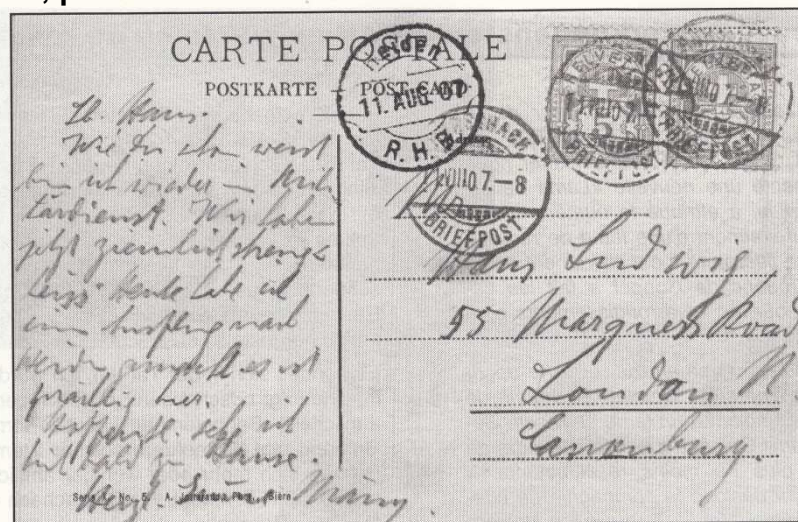 CARTE POSTALE
POSTKARTE – POST CARD
Heiden
11. AUG. 07
R. H. B.
BRIEFPOST
BRIEFPOST
BRIEFPOST
Lb. Hans.
Wie du schon weisst
bin ich wieder im Mili-
tärdienst. Wir haben
jetzt ziemlich streng.
Heute habe ich
einen Ausflug nach
Heiden gemacht es ist
prächtig hier.
Hoffentl. sehe ich
bald zu Hause.
Herzl.
Hans Ludwig
55 Marquess Road
London N.
Canonbury.
Serie 1, No. 5. A.
Bière